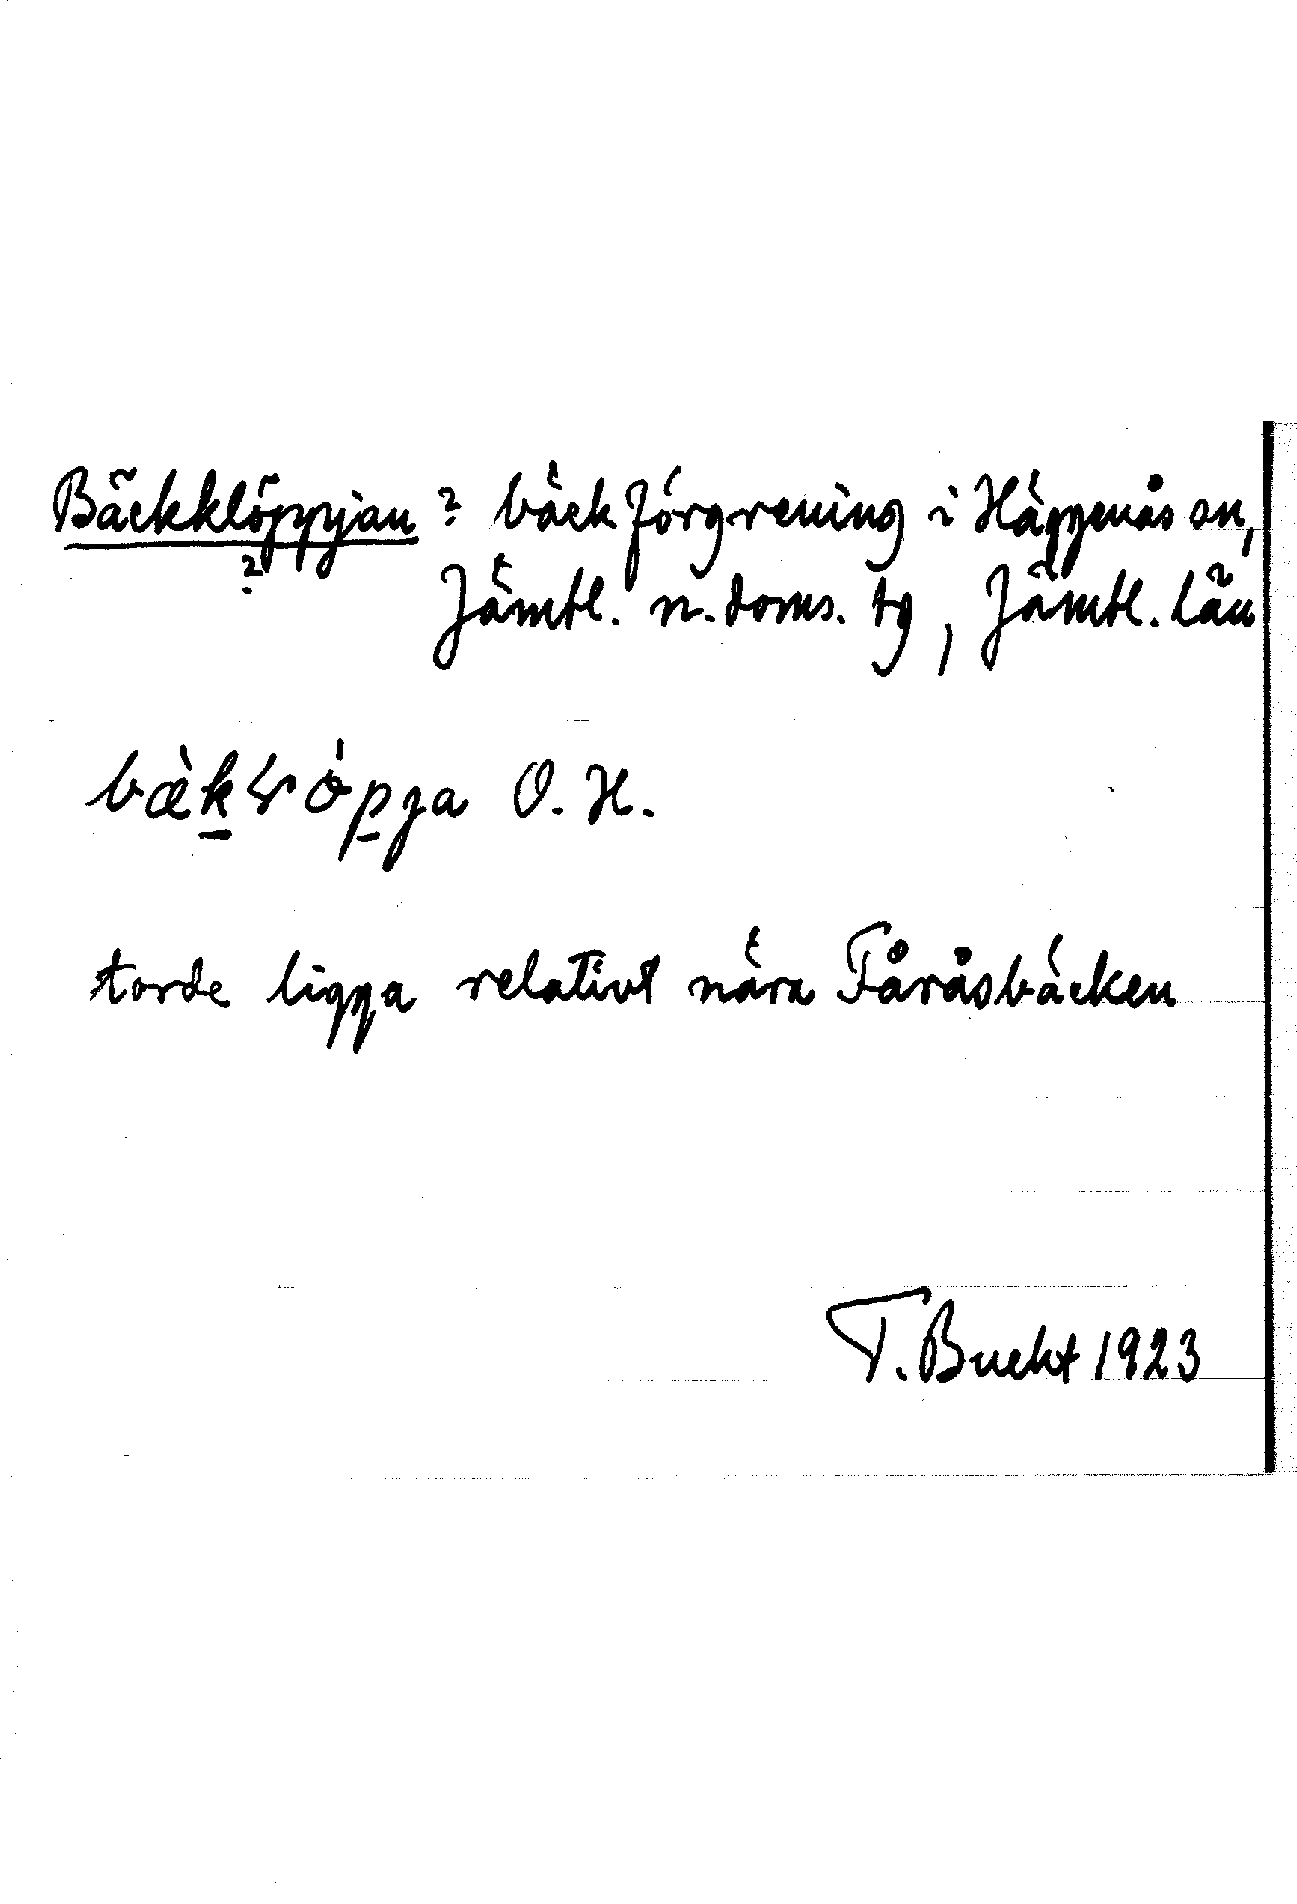 Bäckklöppjan ? bäckförgrening i Häggenås sn,
?
Jämtl. n. doms. tg, Jämtl. län
O. H.
torde ligga relativt nära Fåråsbäcken
T. Bucht 1923